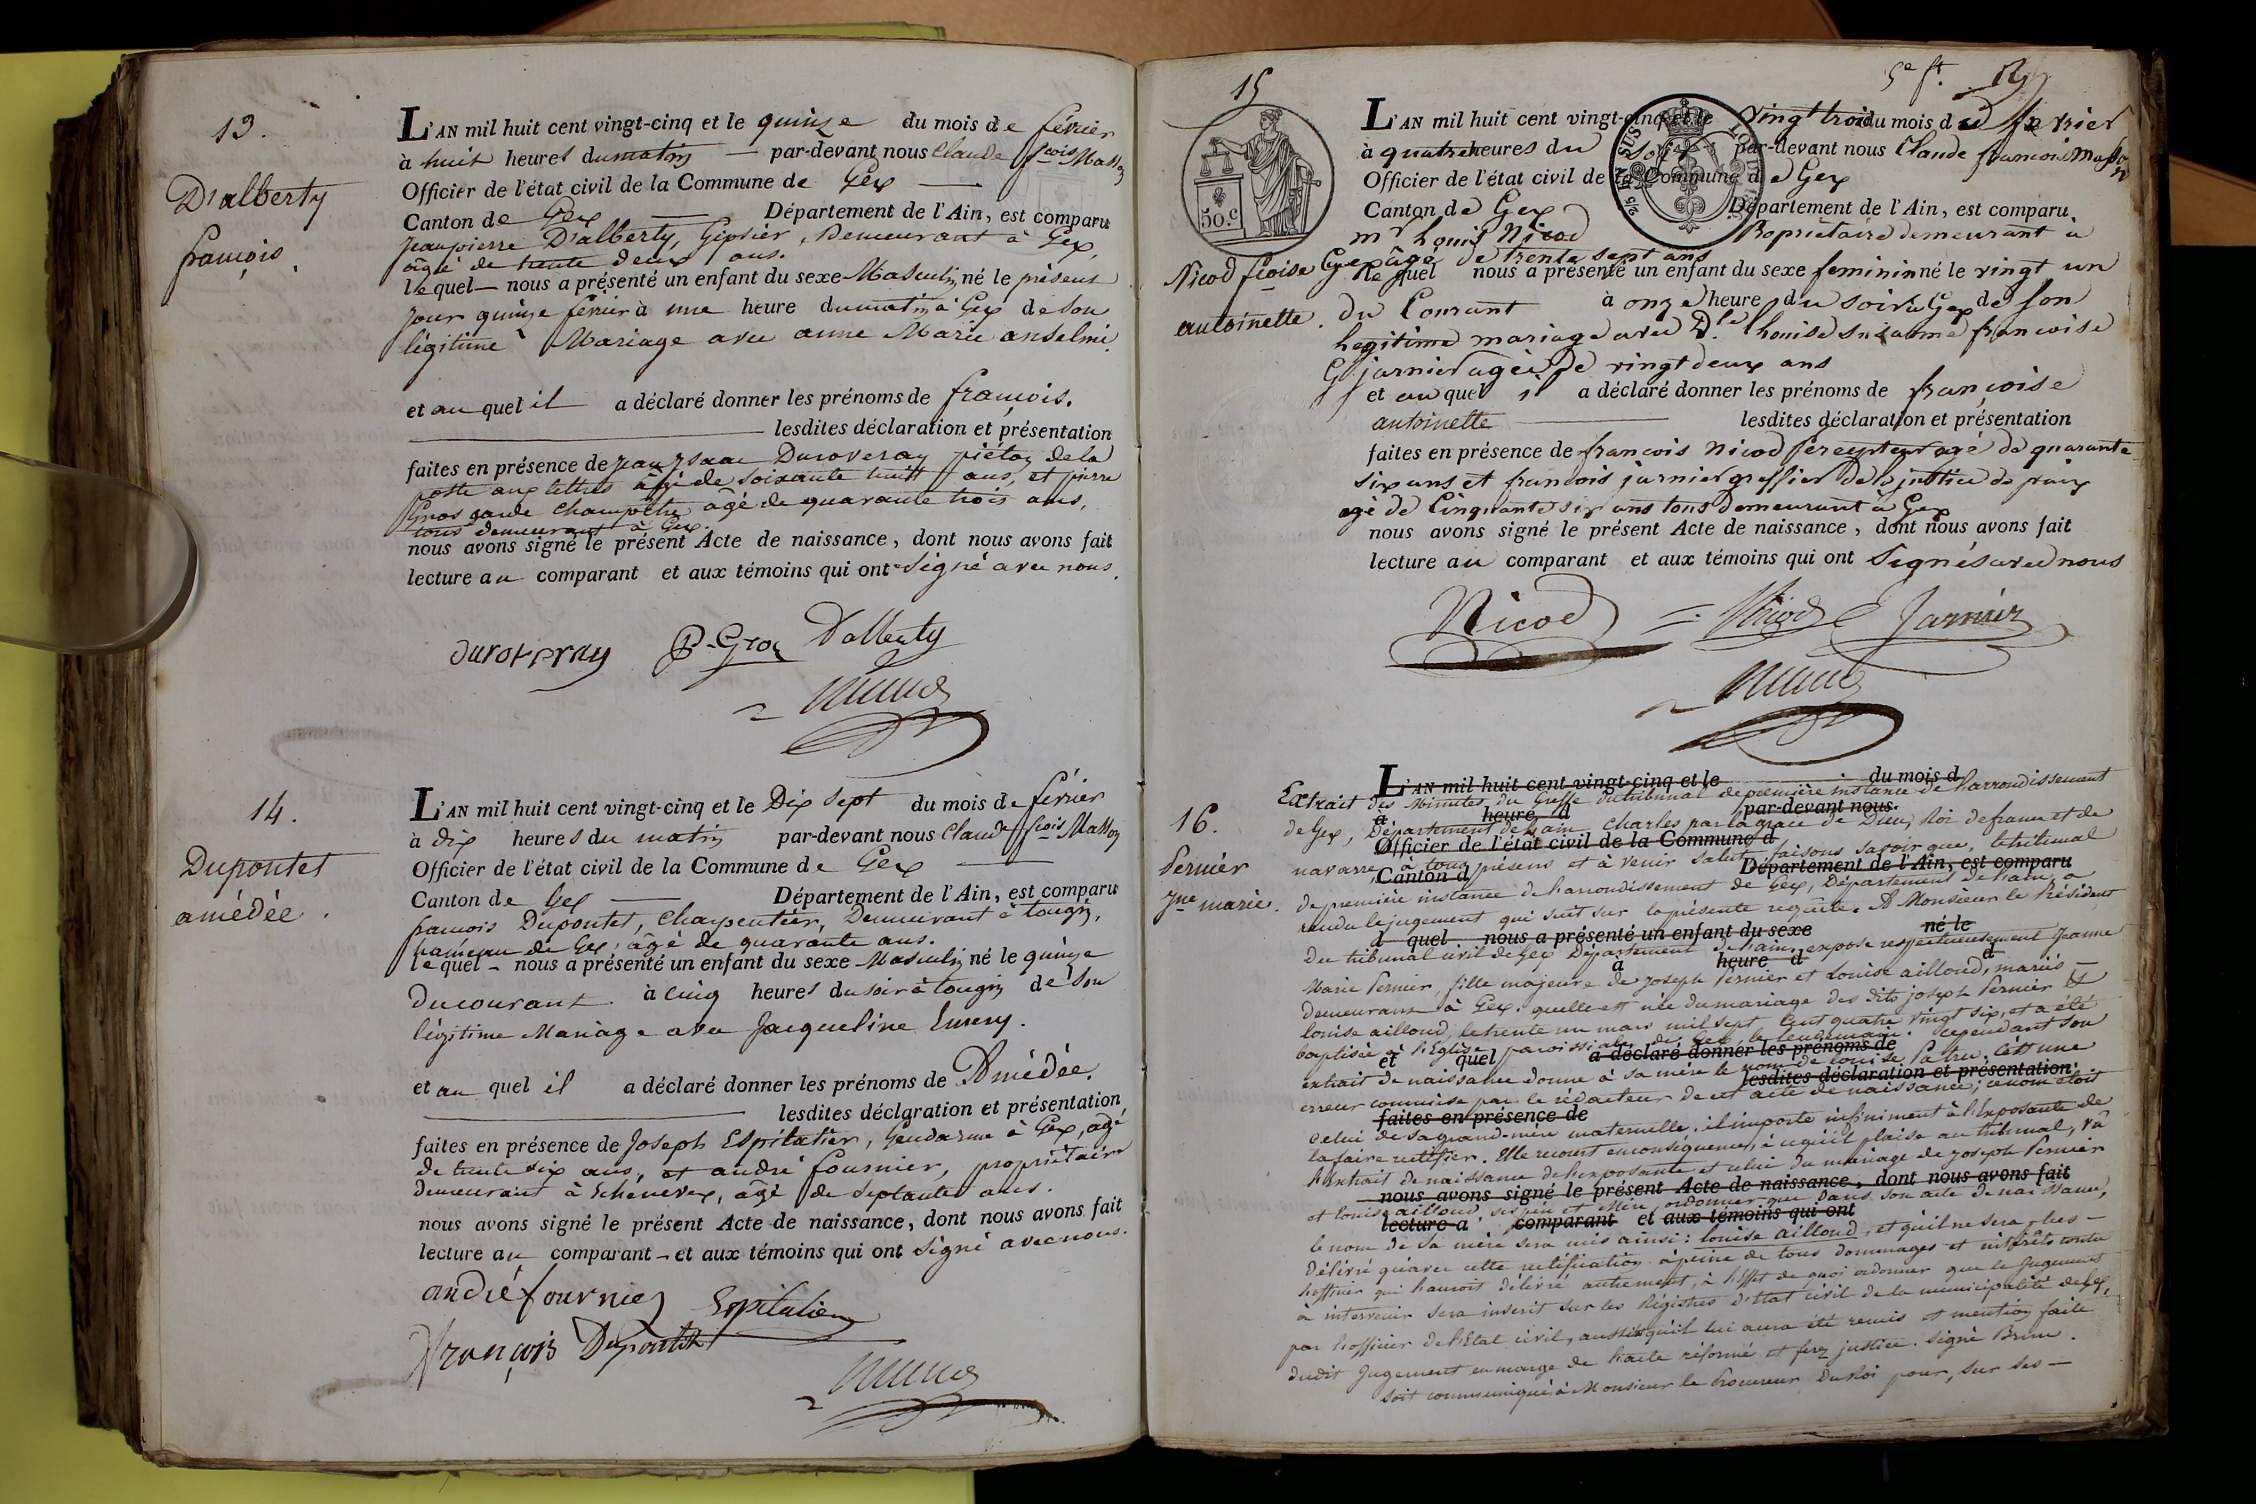 13.
D'alberty
françois.
L'AN mil huit cent vingt-cinq et le quinze du mois de février
à huit heures du matin par-devant nous Claude fcois Masson
Officier de l'état civil de la Commune de Gex
Canton de Gex Département de l'Ain, est comparu
jean pierre D'alberty, Gipsier, Demeurant à Gex,
âgé de trente deux ans.
lequel nous a présenté un enfant du sexe Masculin né le présent
jour quinze février à une heure du matin à Gex de son
légitime Mariage avec anne Marie anselmi.
et au quel il a déclaré donner les prénoms de françois.
lesdites déclaration et présentation
faites en présence de jean isaac Duroveray piéton de la
poste aux lettres âgé de soixante huit ans, et pierre
Gros garde champêtre âgé de quarante trois ans,
tous demeurant à Gex.
nous avons signé le présent Acte de naissance, dont nous avons fait
lecture au comparant et aux témoins qui ont signé avec nous.
duroveray P. Gros Dalberty
14.
Dupontet
amédée.
L'AN mil huit cent vingt-cinq et le Dix sept du mois de février
à dix heures du matin par-devant nous Claude fcois Masson
Officier de l'état civil de la Commune de Gex
Canton de Gex Département de l'Ain, est comparu
françois Dupontet, charpentier, Demeurant à tougin,
hameau de Gex, âgé de quarante ans.
lequel nous a présenté un enfant du sexe Masculin né le quinze
du courant à cinq heures du soir à tougin de son
légitime Mariage avec Jacqueline Emery.
et au quel il a déclaré donner les prénoms de Amédée.
lesdites déclaration et présentation
faites en présence de Joseph Espitalier, Gendarme à Gex, âgé
de trente six ans, et andré fournier, propriétaire
demeurant à Echenevex, âgé de septante ans.
nous avons signé le présent Acte de naissance, dont nous avons fait
lecture au comparant et aux témoins qui ont signé avec nous.
andré fournier Espitalier
françois Dupontet
5e ft.
15
50.c
Nicod fcoise
antoinette.
L'AN mil huit cent vingt-cinq et le vingt trois du mois de février
à quatre heures du soir par-devant nous Claude françois Masson
Officier de l'état civil de la Commune de Gex
Canton de Gex Département de l'Ain, est comparu
mr Louis Nicod Propriétaire demeurant à
Gex âgé de trente sept ans
lequel nous a présenté un enfant du sexe feminin né le vingt un
du Courant à onze heure du soir à Gex de son
legitime mariage avec Dle Louise Susanne françoise
jarnier agée de vingt deux ans
et au quel il a déclaré donner les prénoms de françoise
antoinette lesdites déclaration et présentation
faites en présence de françois Nicod Percepteur agé de quarante
six ans et françois jarnier greffier de la justice de paix
agé de Cinquante six ans tous demeurant à Gex
nous avons signé le présent Acte de naissance, dont nous avons fait
lecture au comparant et aux témoins qui ont signés avec nous
Nicod Nicod Jarnier
16.
Pernier
jne marie.
L'AN mil huit cent vingt-cinq et le du mois d
Extrait des Minutes du Greffe du tribunal de première instance de l'arrondissement
à heure d par-devant nous
de Gex, Département de l'ain, Charles par la grace de Dieu, Roi de france et de
Officier de l'état civil de la Commune d
navarre, à tous présens et à venir salut, faisons savoir que, le tribunal
Canton d Département de l'Ain, est comparu
de première instance de l'arrondissement de Gex, Département de l'ain, a
rendu le jugement qui suit sur la présente requête. A Monsieur le Président
d quel nous a présenté un enfant du sexe né le
Du tribunal civil de Gex Département de l'ain, expose respectueusement Jeanne
à heure d d
Marie Pernier, fille majeure de joseph Pernier et Louise ailloud, mariés
demeurant à Gex. quelle est née du mariage des dits joseph Pernier &
louise ailloud, le trente un mars mil sept cent quatre vingt six, et a été
baptisée à l'Eglise paroissiale de Gex, le lendemain. cependant son
et quel a déclaré donner les prénoms de
extrait de naissance donne à sa mère le nom de louise Patru. C'est une
lesdites déclaration et présentation
erreur commise par le rédacteur de cet acte de naissance; ce nom étoit
faites en présence de
celui de sa grand-mère maternelle. il importe infiniment à l'Exposante de
la faire rectifier. Elle recourt en conséquence, à ce qu'il plaise au tribunal, vû
l'extrait de naissance de l'exposante et celui du mariage de joseph Pernier
nous avons signé le présent Acte de naissance, dont nous avons fait
et louise ailloud ses père et Mère, ordonner que dans son acte de naissance,
lecture a comparant et aux témoins qui ont
le nom de sa mère sera mis ainsi: louise ailloud, et qu'il ne sera plus
délivré qu'avec cette rectification à peine de tous dommages et intérêts contre
l'officier qui l'auroit délivré autrement, à l'effet de quoi ordonner que le Jugement
à intervenir sera inscrit sur les Régistres d'Etat civil de la municipalité de Gex,
par l'officier de l'Etat civil, aussitôt qu'il lui aura été remis et mention faite
dudit Jugement en marge de l'acte réformé et ferez justice. signé
soit communiqué à Monsieur le Procureur Du Roi pour, sur ses